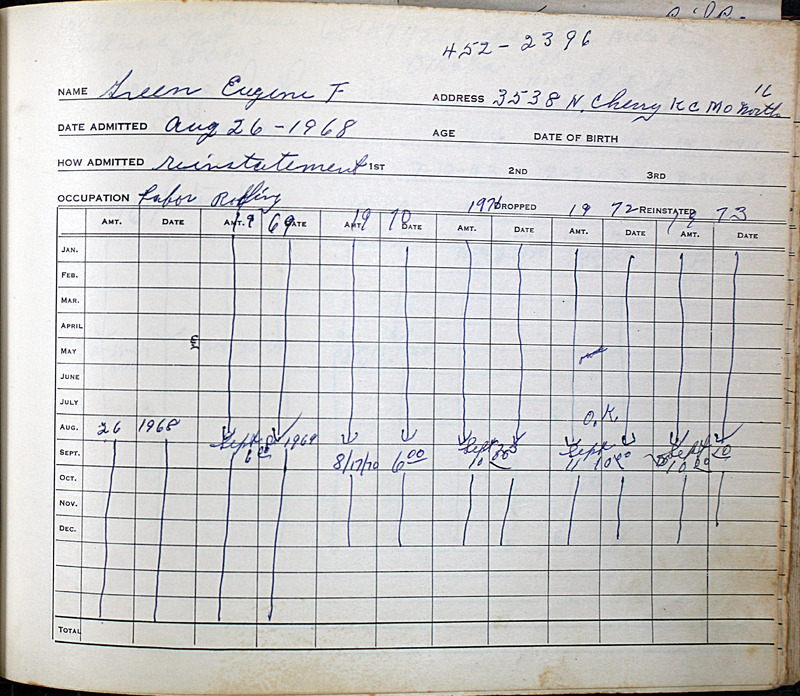 452-2396
NAME Green Eugene F ADDRESS 3538 N. Cherry K C MO North 16
DATE ADMITTED Aug 26-1968 AGE DATE OF BIRTH
HOW ADMITTED reinstatement 1ST 2ND 3RD
OCCUPATION Labor Roofing
1971 DROPPED 19 72 REINSTATED 19 73
AMT. DATE AMT. 19 69 DATE AMT. 19 70 DATE AMT. DATE AMT. DATE AMT. DATE
JAN.
FEB.
MAR.
APRIL
MAY
JUNE
JULY
O.K.
AUG. 26 1968
Sept 8 1969 Sept Sept Sept 10
SEPT. 6 00 8/17/70 6 00 10 11 10 00 10 00
OCT.
NOV.
DEC.
TOTAL